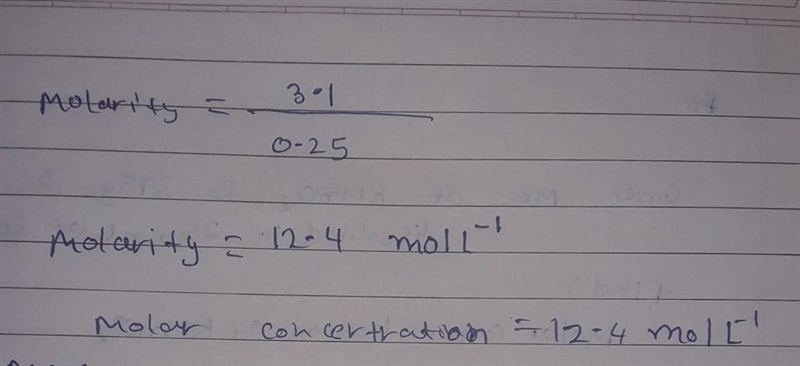 Molarity = 3.1
0.25
Molarity = 12.4 mol L⁻¹
Molar concertration = 12.4 mol L⁻¹